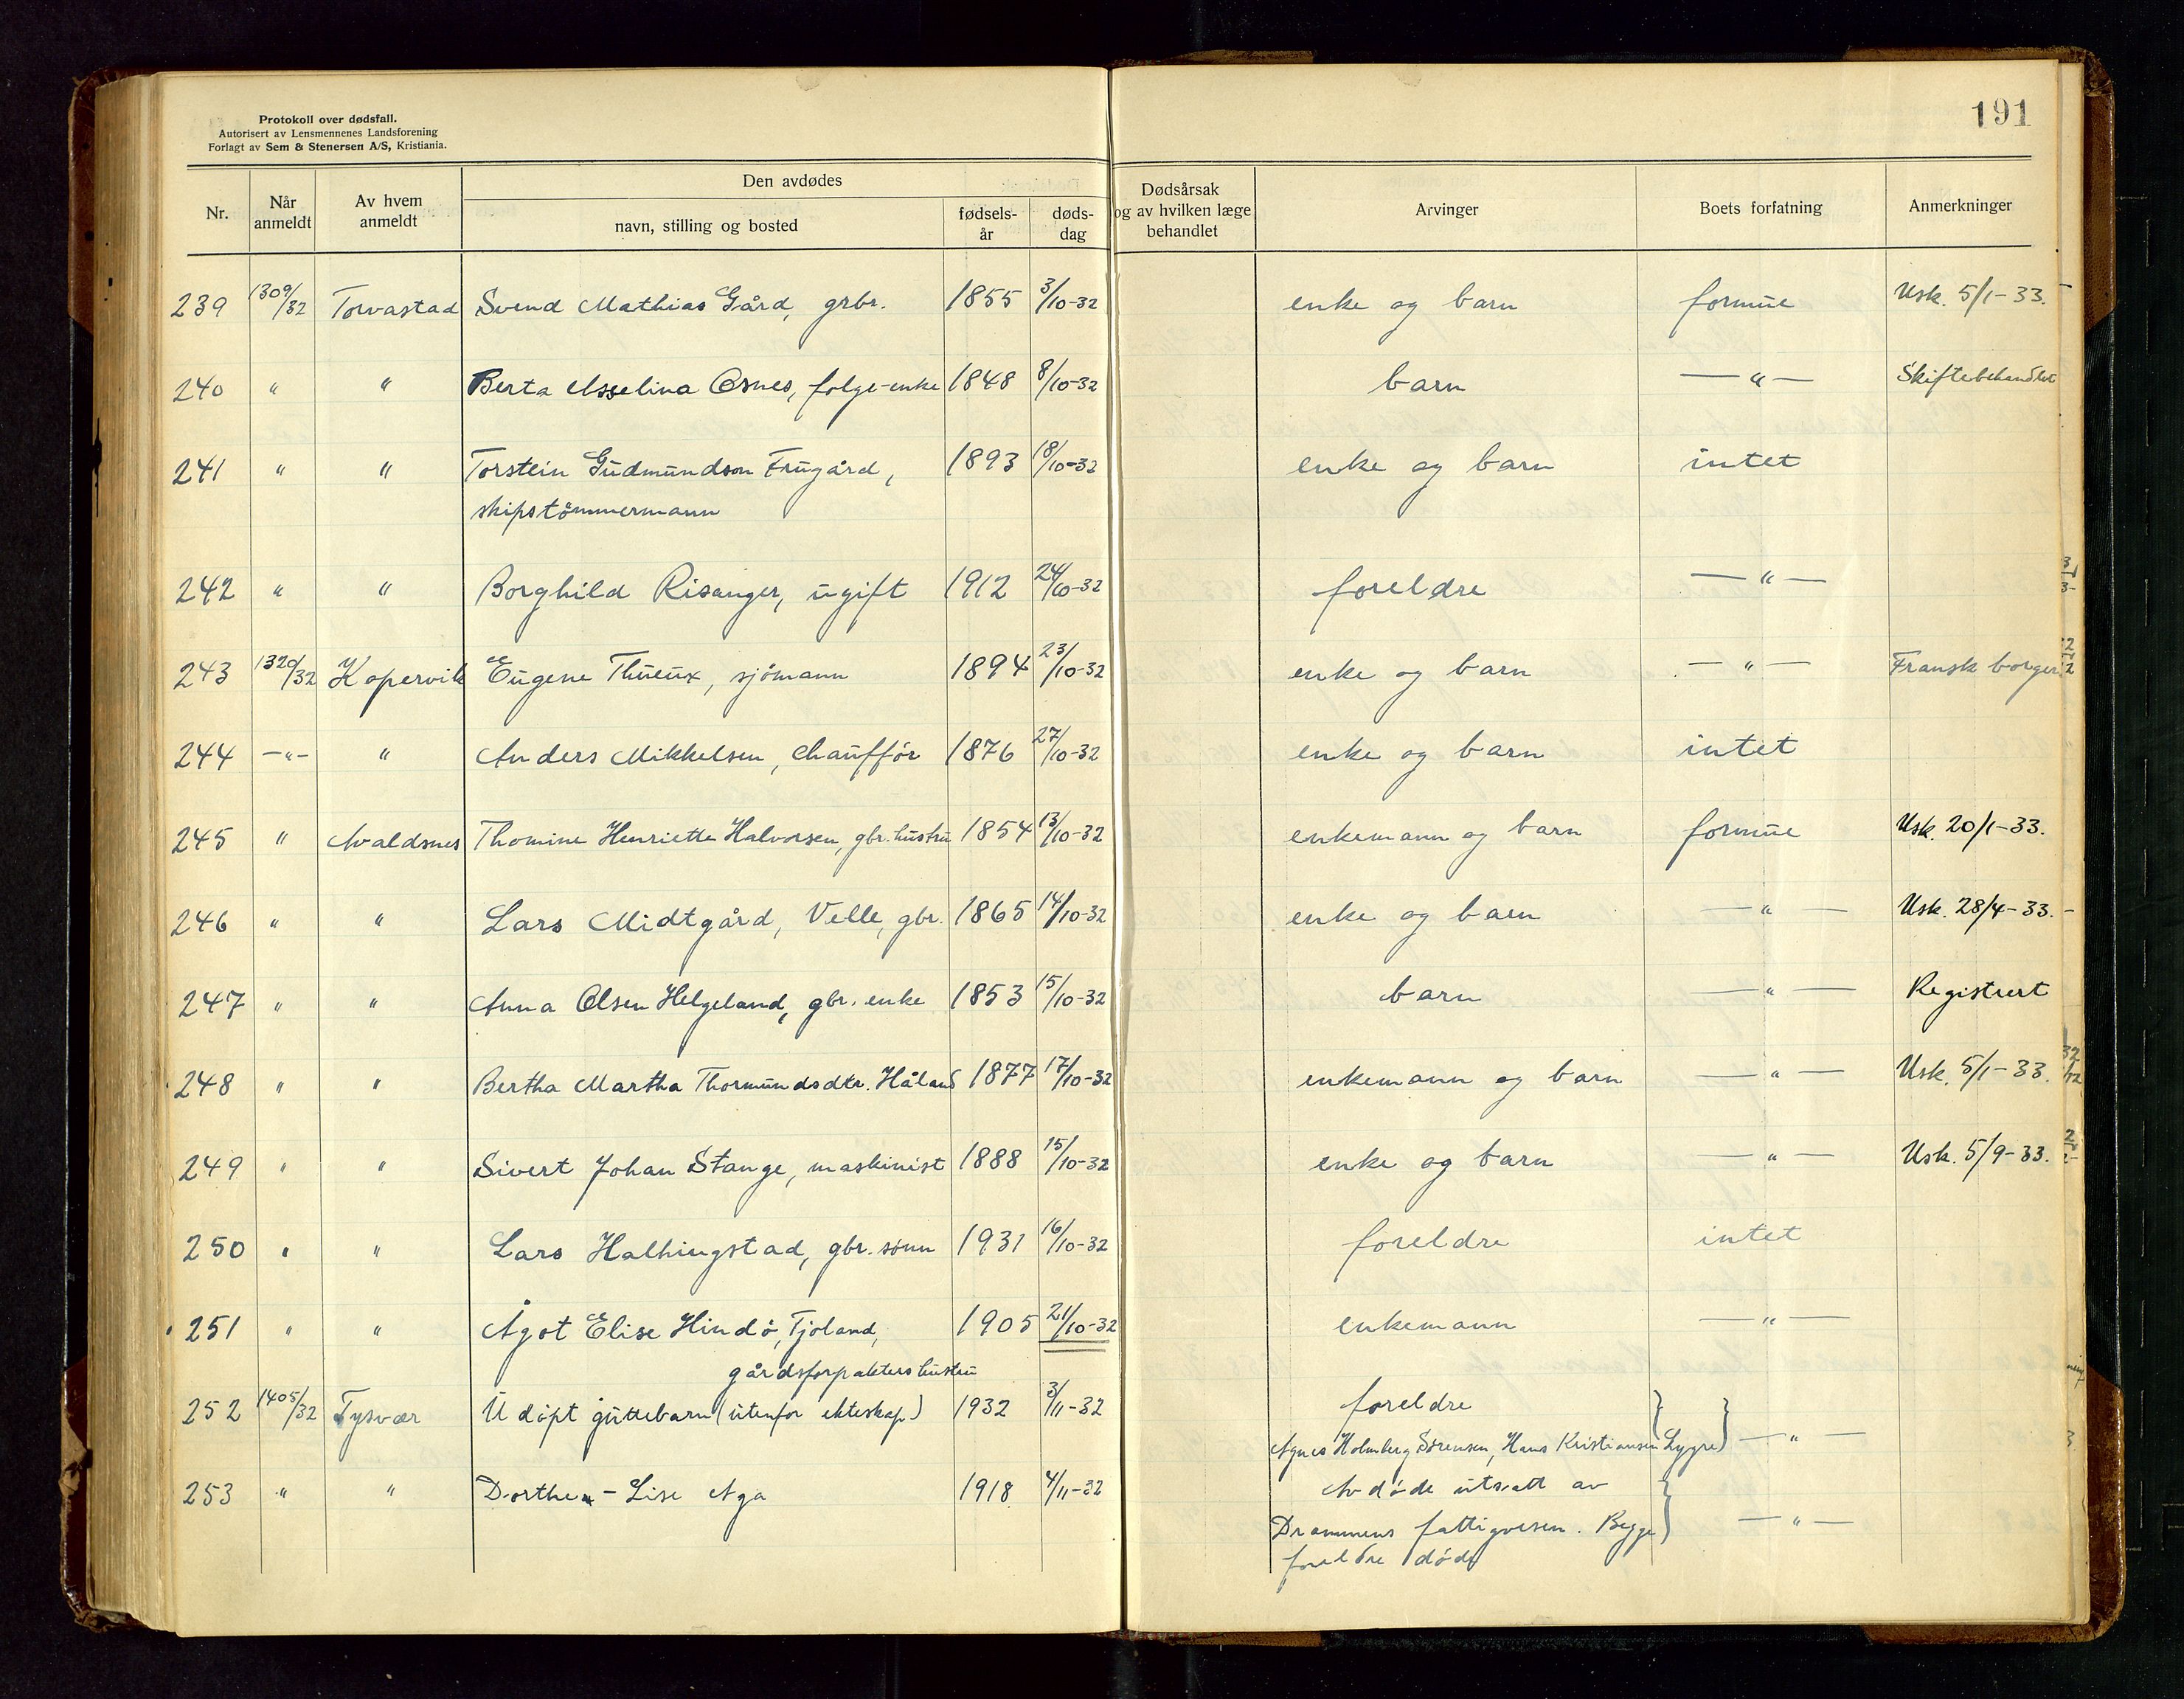 191
Protokoll over dødsfall.
Autorisert av Lensmennenes Landsforening
Forlagt av Sem & Stenersen A/S, Kristiania.
Nr. Når anmeldt Av hvem anmeldt Den avdødes navn, stilling og bosted fødsels-år døds-dag Dødsårsak og av hvilken læge behandlet Arvinger Boets forfatning Anmerkninger
239 1309/32 Torvastad Svend Mathias Gård, grbr. 1855 3/10-32 enke og barn formue Usk. 5/1-33.
240 " " Berta Asselina Osnes, folge-enke 1848 8/10-32 barn —"— Skiftebehandlet
241 " " Torstein Gudmundson Frugård, 1893 18/10-32 enke og barn intet
skipstömmermann
242 " " Borghild Risanger, ugift 1912 24/10-32 foreldre —"—
243 1320/32 Kopervik Eugene Thueux, sjömann 1894 23/10-32 enke og barn —"— Fransk borger
244 —"— " Anders Mikkelsen, chaufför 1876 27/10-32 enke og barn intet
245 " Avaldsnes Thomine Henriette Halvorsen, gbr. hustru 1854 13/10-32 enkemann og barn formue Usk. 20/1-33.
246 " " Lars Midtgård, Velle, gbr. 1865 14/10-32 enke og barn —"— Usk. 28/4-33.-
247 " " Anna Olsen Helgeland, gbr. enke 1853 15/10-32 barn —"— Registrert
248 " " Bertha Martha Thormundsdtr. Håland 1877 17/10-32 enkemann og barn —"— Usk. 5/1-33.
249 " " Sivert Johan Stange, maskinist 1888 15/10-32 enke og barn —"— Usk. 5/9-33.
250 " " Lars Halhingstad, gbr. sönn 1931 16/10-32 foreldre intet
251 " " Ågot Elise Hindö, Tjoland, 1905 21/10-32 enkemann —"—
gårdsforpakters hustru
252 1405/32 Tysvær Udöpt guttebarn (utenfor ekteskap) 1932 3/11-32 foreldre
Agnes Holmberg Sörensen, Hans Kristiansen Lygre) —"—
253 " " Dorthea-Lise Aga 1918 4/11-32 Avdöde utsatt av
Drammens fattigvesen. Begge —"—
foreldre döde